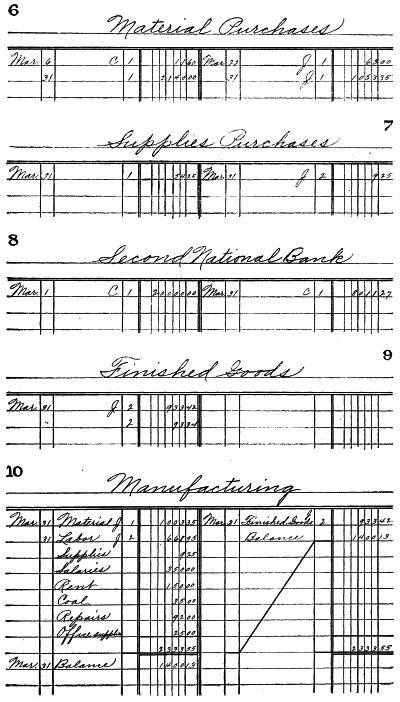 6
Material Purchases
Mar. 6 C 1 11 60 Mar. 22 J 1 63 00
31 1 2140 00 31 J 1 1053 35
7
Supplies Purchases
Mar. 31 1 54 25 Mar. 31 J 2 9 25
8
Second National Bank
Mar. 1 C 1 20000 00 Mar. 31 C 1 8011 27
9
Finished Goods
Mar. 31 J 2 933 42
" 2 93 34
10
Manufacturing
Mar. 31 Material J 1 1003 35 Mar. 31 Finished Goods J 2 933 42
31 Labor J 2 668 95 Balance 1400 13
Supplies 9 25
Salaries 350 00
Rent 150 00
Coal 35 00
Repairs 92 00
Office supplies 25 00
2333 55 2333 55
Mar. 31 Balance 1400 13